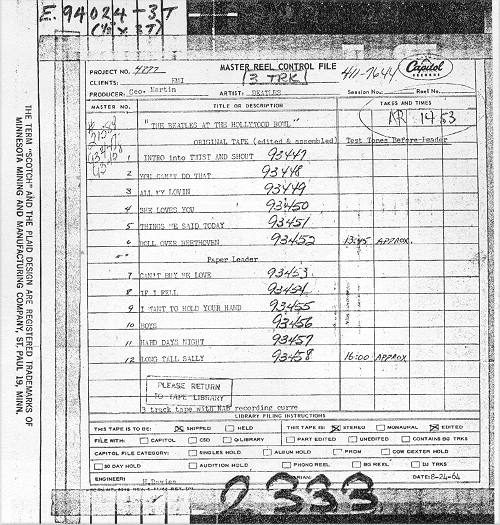 E. 94024-3T
(½" x 3T)
MASTER REEL CONTROL FILE
PROJECT NO. 4222
3 TRK
411-7644
Capitol
RECORDS
CLIENTS: EMI
PRODUCER: Geo. Martin
ARTIST: BEATLES
Session No.:
Reel No.
MASTER NO.
TITLE OR DESCRIPTION
TAKES AND TIMES
"THE BEATLES AT THE HOLLYWOOD BOWL"
AR 1453
ORIGINAL TAPE (edited & assembled) Test Tones Before leader
1 INTRO into TWIST AND SHOUT 93447
2 YOU CAN'T DO THAT 93448
3 ALL MY LOVIN 93449
4 SHE LOVES YOU 93450
5 THINGS WE SAID TODAY 93451
6 ROLL OVER BEETHOVEN 93452 13:45 APPROX.
Paper Leader
7 CAN'T BUY ME LOVE 93453
8 IF I FELL 93454
9 I WANT TO HOLD YOUR HAND 93455
10 BOYS 93456
11 HARD DAYS NIGHT 93457
12 LONG TALL SALLY 93458 16:00 APPROX
PLEASE RETURN
TO TAPE LIBRARY
3 track tape with NAB recording curve
LIBRARY FILING INSTRUCTIONS
THIS TAPE IS TO BE: SHIPPED HELD THIS TAPE IS: STEREO MONAURAL EDITED
FILE WITH: CAPITOL CSD Q-LIBRARY PART EDITED UNEDITED CONTAINS BG TRKS
CAPITOL FILE CATEGORY: SINGLES HOLD ALBUM HOLD PROM COW DEXTER HOLD
30 DAY HOLD AUDITION HOLD PHONO REEL BG REEL DJ TRKS
ENGINEER: H.Davies
DATE: 8-24-64
2333
THE TERM "SCOTCH" AND THE PLAID DESIGN ARE REGISTERED TRADEMARKS OF
MINNESOTA MINING AND MANUFACTURING COMPANY, ST. PAUL 19, MINN.